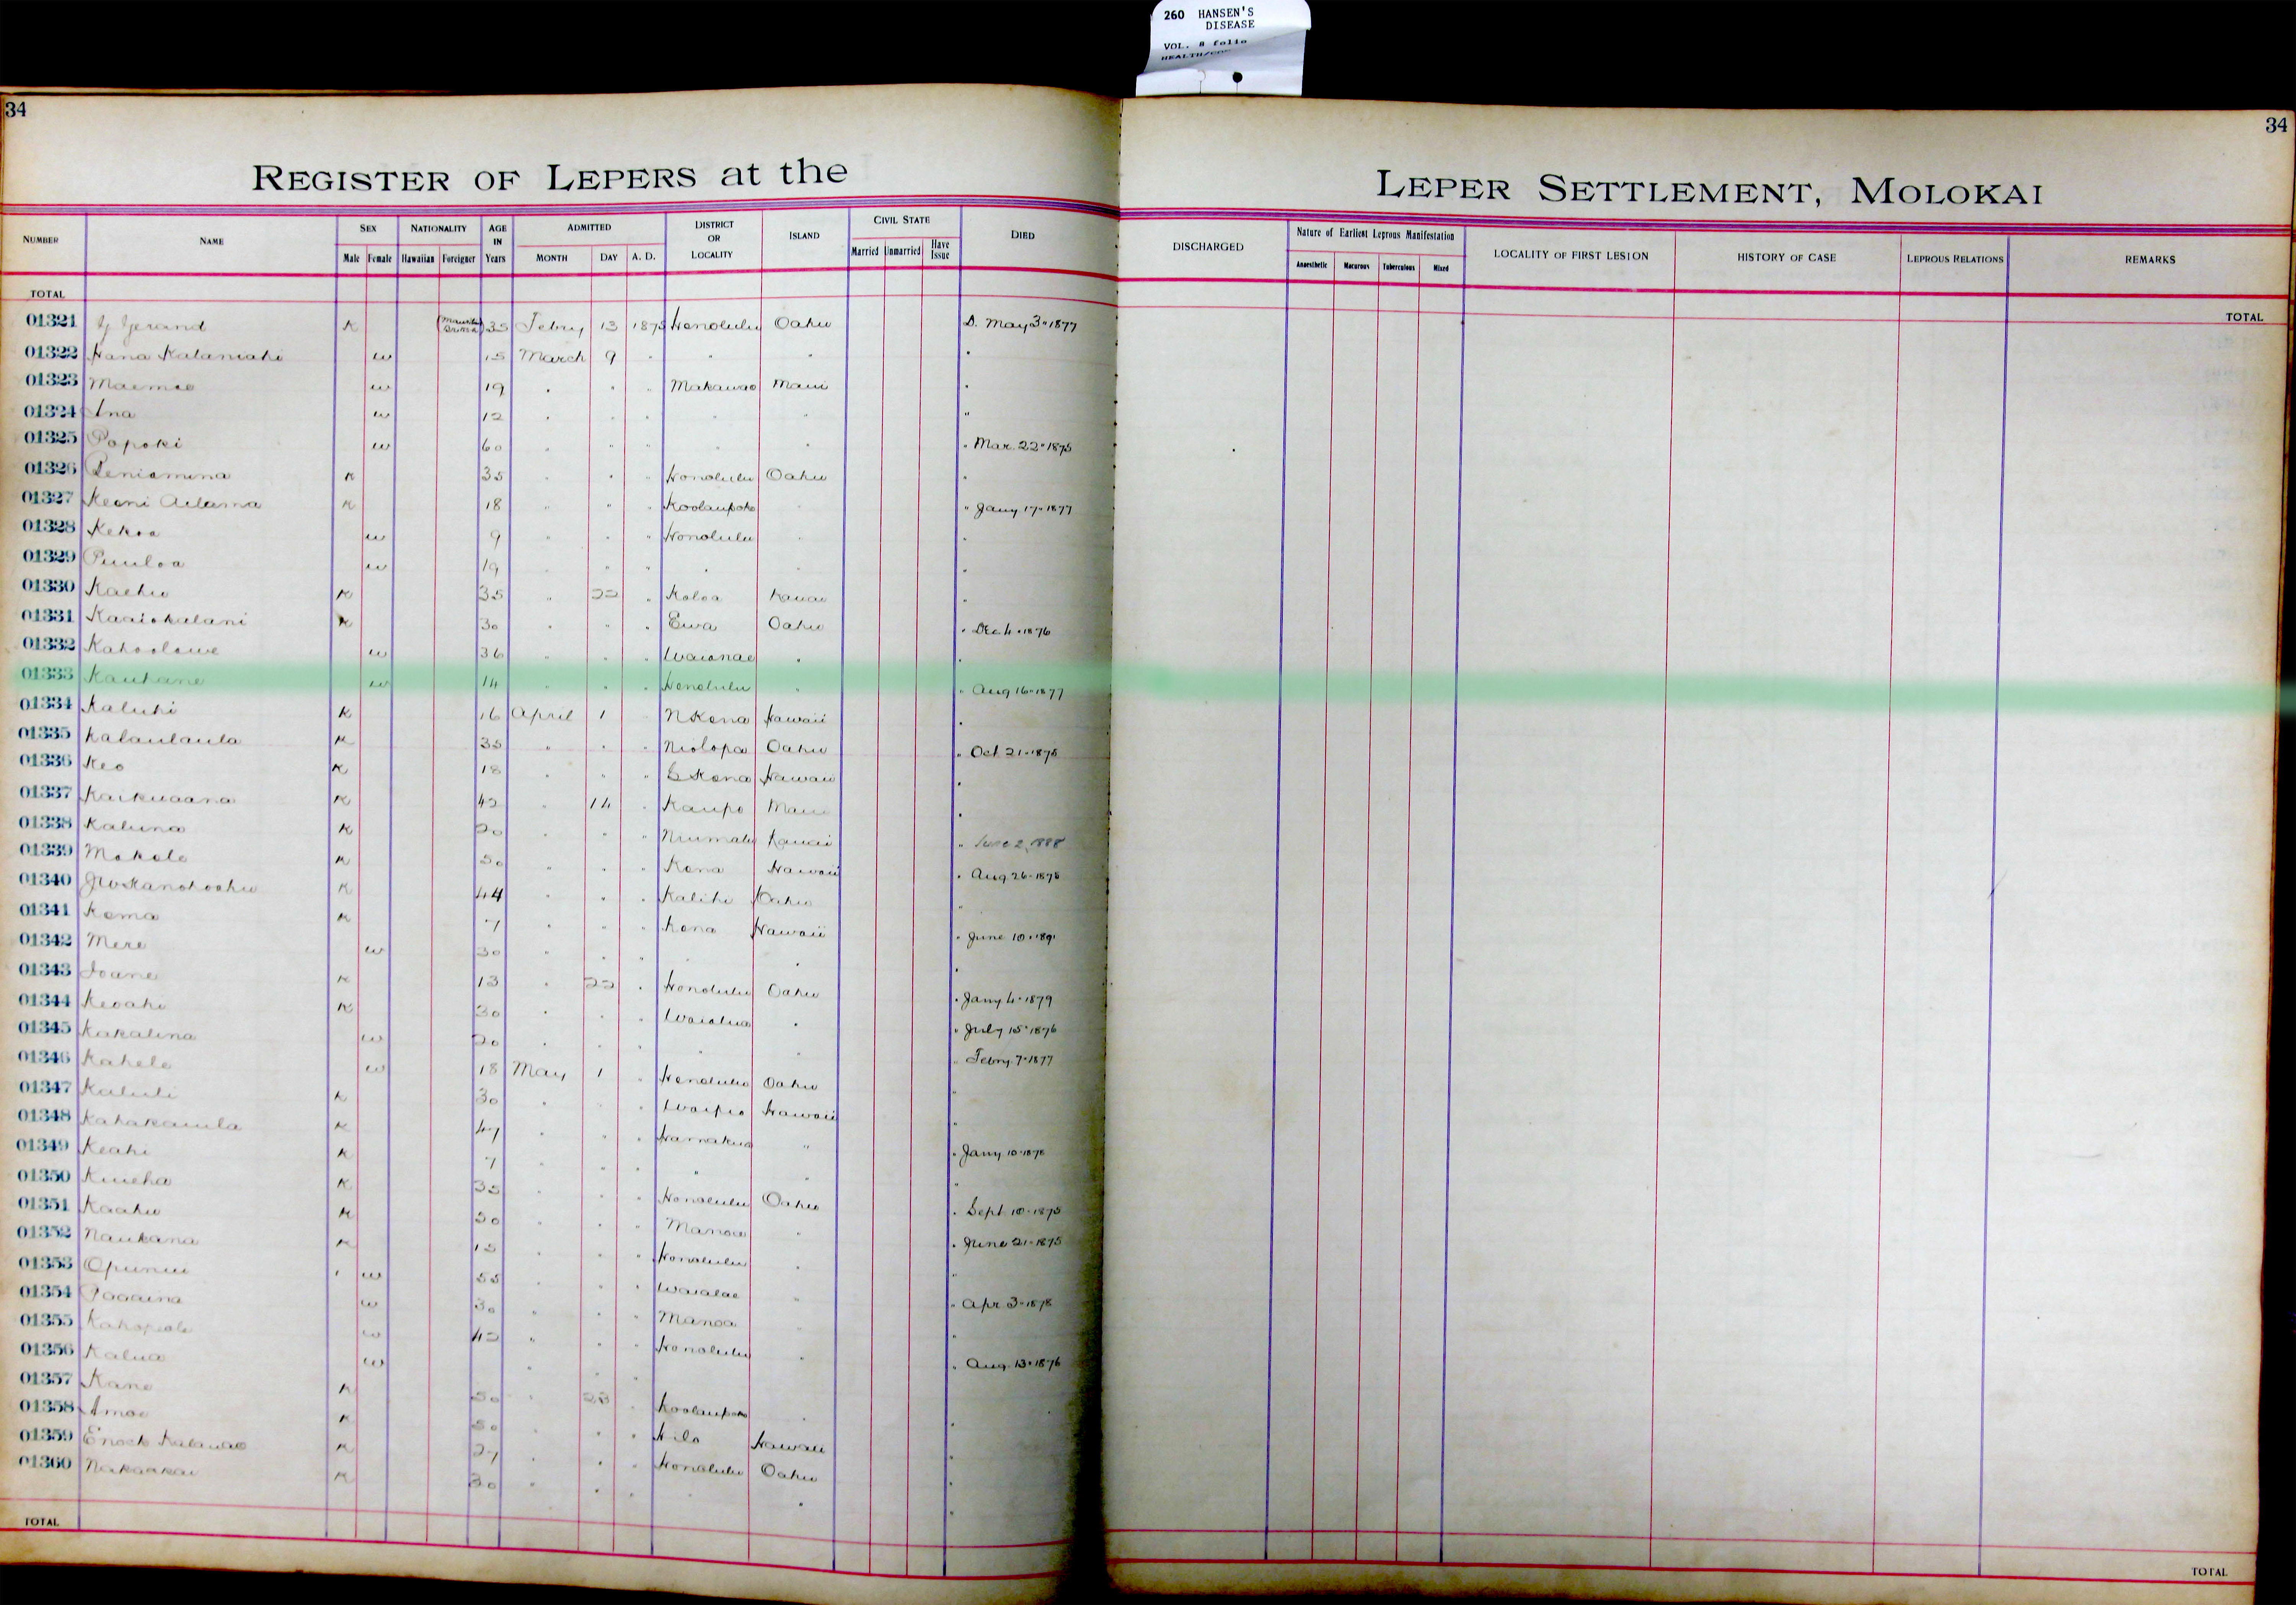 260 HANSEN'S
DISEASE
VOL. 8 folio
34
34
REGISTER OF LEPERS at the
LEPER SETTLEMENT, MOLOKAI
NUMBER NAME SEX Male Female NATIONALITY Hawaiian Foreigner AGE IN Years ADMITTED MONTH DAY A. D. DISTRICT OR LOCALITY ISLAND CIVIL STATE Married Unmarried Have Issue DIED
DISCHARGED Nature of Earliest Leprous Manifestation Anaesthetic Macurous Tuberculous Mixed LOCALITY OF FIRST LESION HISTORY OF CASE LEPROUS RELATIONS REMARKS
TOTAL
TOTAL
01321 K 35 Febry 13 1875 Honolulu Oahu D. May 3" 1877
01322 Hana Kalaniahi w 15 March 9 " " " "
01323 Maemae w 19 " " " Makawao Maui "
01324 Ana w 12 " " " " " "
01325 Popoki w 60 " " " " " " Mar. 22" 1875
01326 Peniamina K 35 " " " Honolulu Oahu "
01327 Keoni Ailama K 18 " " " Koolaupoko " " Jany 17" 1877
01328 Kekoa w 9 " " " Honolulu " "
01329 Puuloa w 19 " " " " " "
01330 Kaehu K 35 " 22 " Koloa Kauai "
01331 Kaaiokalani K 30 " " " Ewa Oahu " Dec 4" 1876
01332 Kahoolawe w 36 " " " Waianae " "
01333 Kauhane w 14 " " " Honolulu " " Aug 16" 1877
01334 Kaluhi K 16 April 1 " N Kona Hawaii "
01335 Kalaulaula K 35 " " " Niolopa Oahu " Oct 21" 1875
01336 Keo K 18 " " " S Kona Hawaii "
01337 Kaikuaana K 42 " 14 " Kaupo Maui "
01338 Kaluna K 20 " " " Niumalu Kauai " June 2, 1888
01339 Makole K 50 " " " Kona Hawaii " Aug 26" 1878
01340 K 44 " " " Kalihi Oahu "
01341 Kema K 7 " " " Kona Hawaii " June 10" 1891
01342 Mere w 30 " " " " " "
01343 Ioane K 13 " 22 " Honolulu Oahu " Jany 4" 1879
01344 Keoahi K 30 " " " Waialua " " July 15" 1876
01345 Kakalina w 20 " " " " " " Febry 7" 1877
01346 Kahele w 18 May 1 " Honolulu Oahu "
01347 Kaluli K 30 " " " Waipio Hawaii "
01348 Kahakauila K 47 " " " Hamakua " " Jany 10" 1878
01349 Keahi K 7 " " " " " "
01350 Kuueha K 35 " " " Honolulu Oahu " Sept 10" 1875
01351 Kaahu K 50 " " " Manoa " " June 21" 1875
01352 Naukana K 15 " " " Honolulu " "
01353 Opunui w 55 " " " Waialae " " Apr 3" 1878
01354 Paaaina w 30 " " " Manoa " "
01355 w 42 " " " Honolulu " " Aug. 13" 1876
01356 Kalua w " " "
01357 Kane K 50 " 23 " Koolaupoko " "
01358 Amoe K 50 " " " Hilo Hawaii "
01359 Enoch Kalauao K 27 " " " Honolulu Oahu "
01360 Nakaakai K 30 " " " " " "
TOTAL
TOTAL